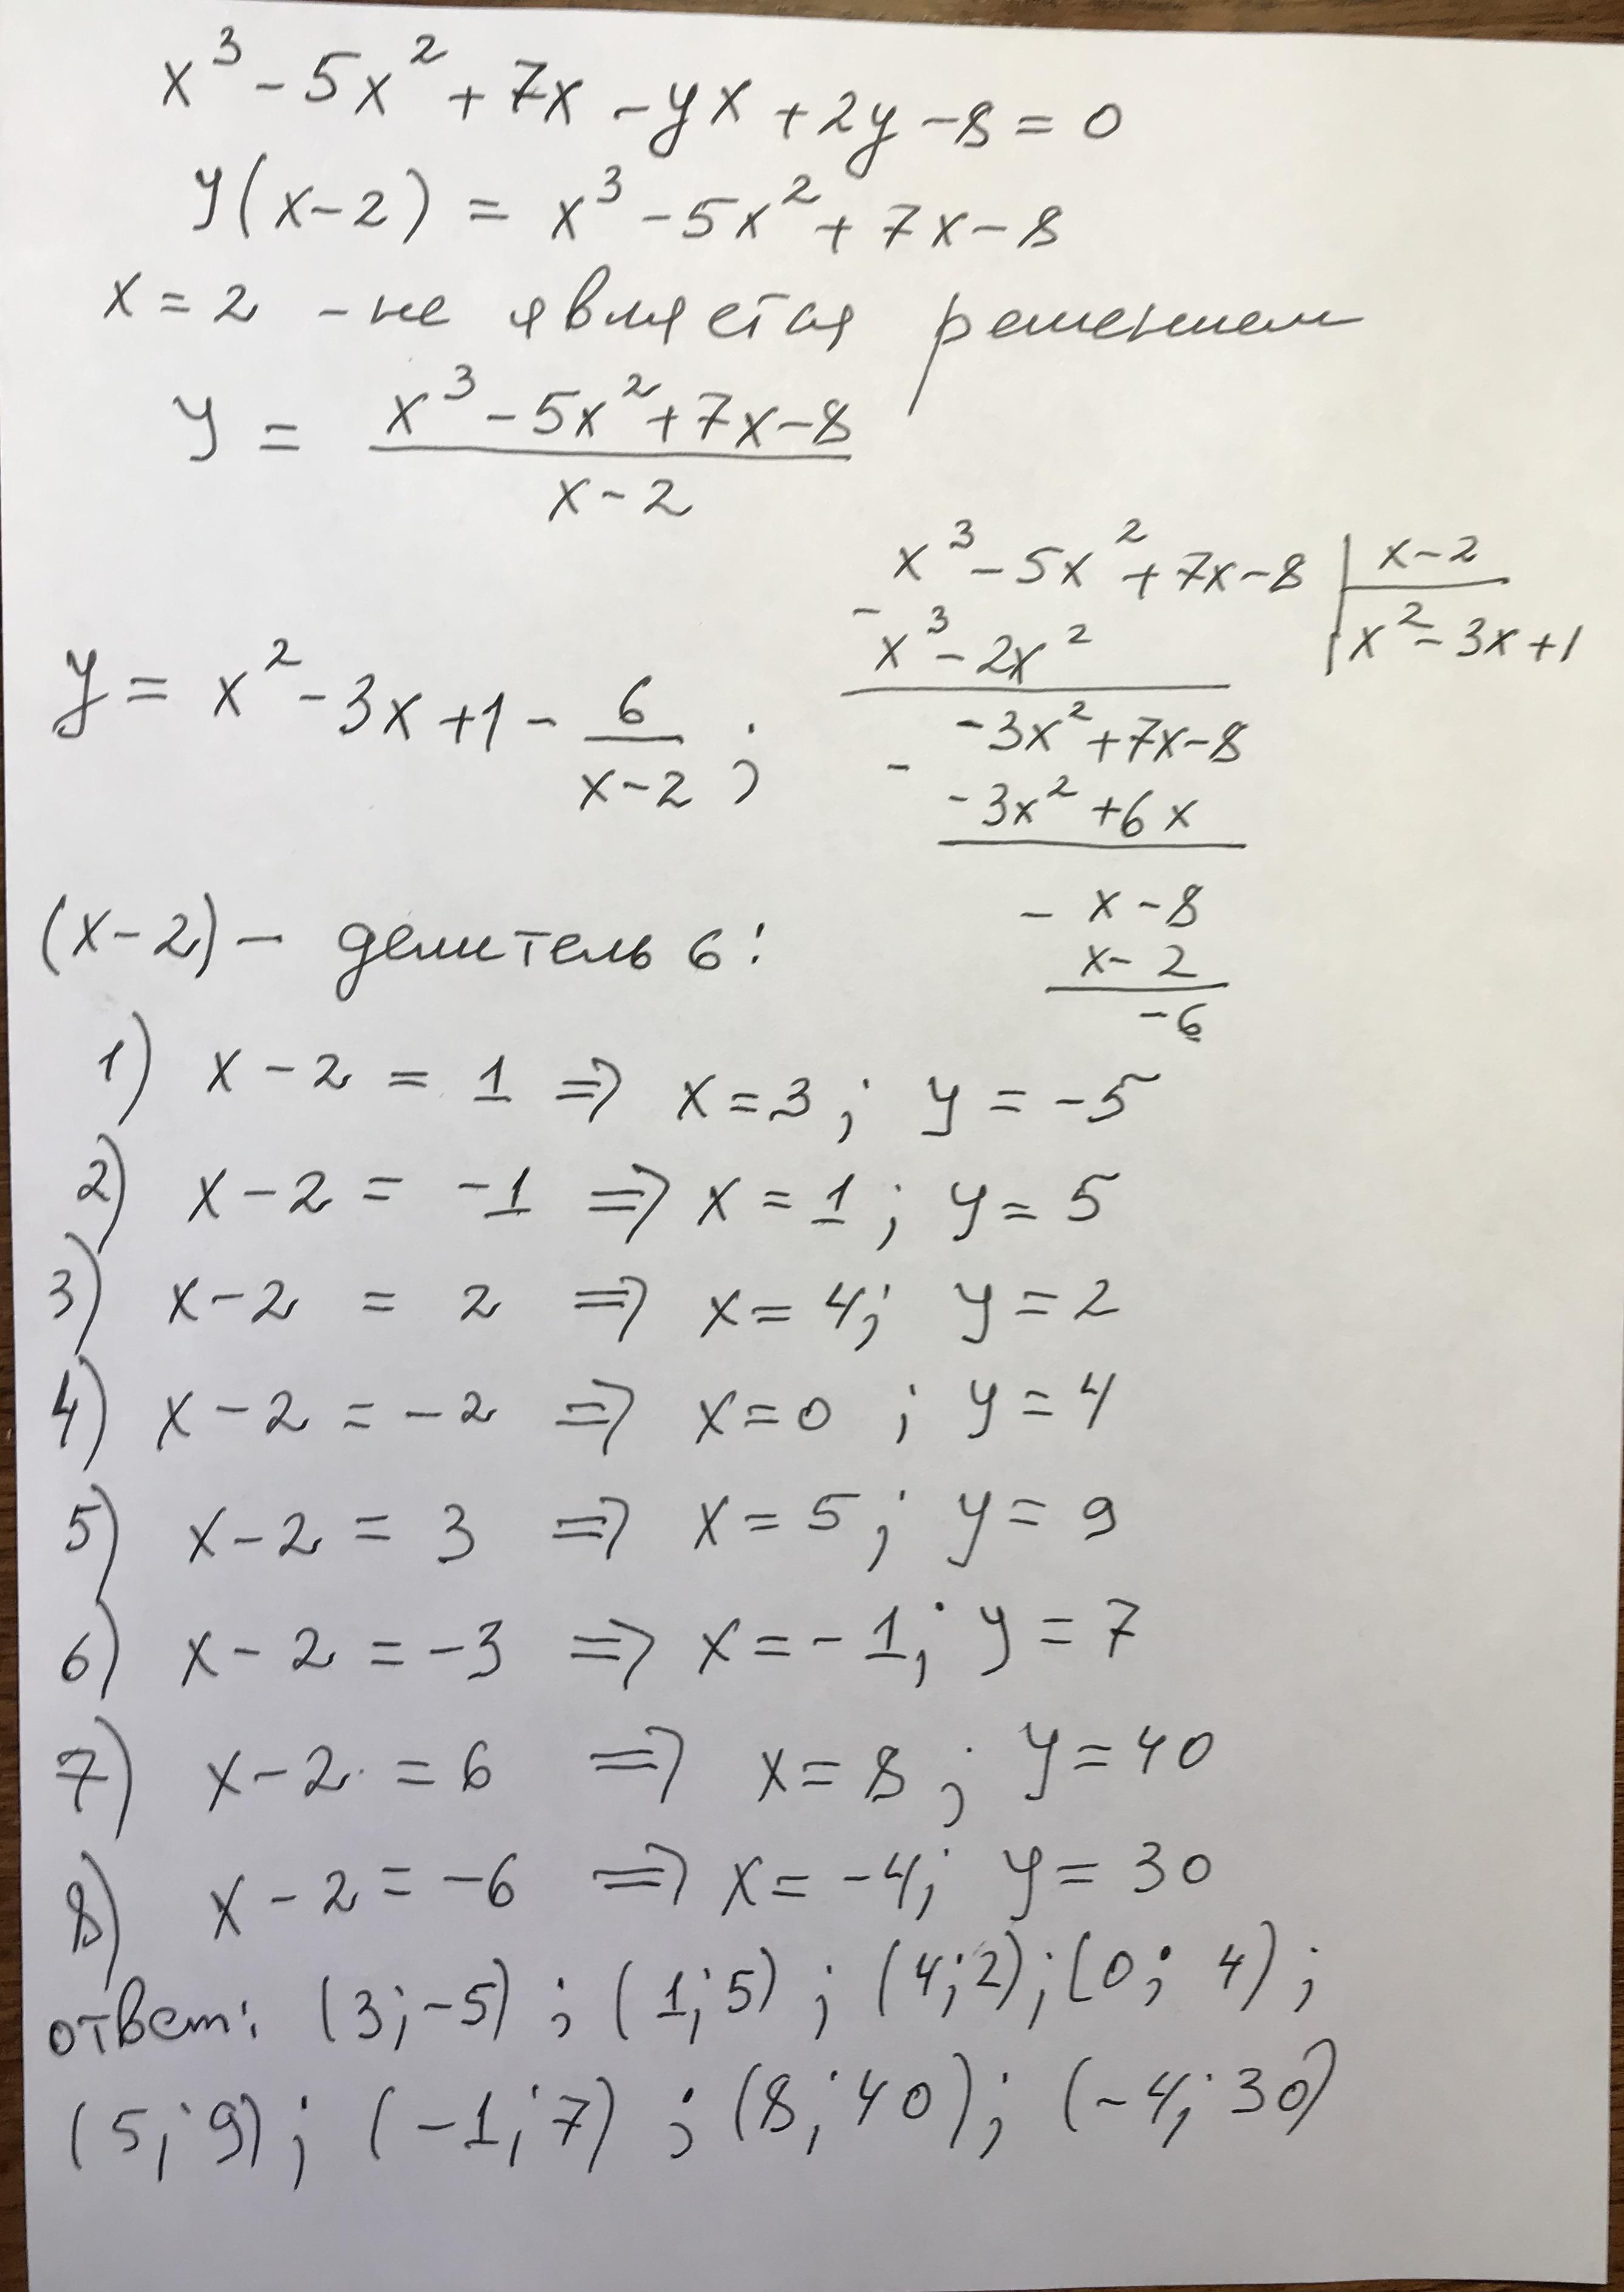 x³ - 5x² + 7x - yx + 2y - 8 = 0
y(x-2) = x³ - 5x² + 7x - 8
x = 2 - не является решением
y = (x³ - 5x² + 7x - 8)/(x - 2)
x³ - 5x² + 7x - 8 | x - 2
- x³ - 2x² | x² - 3x + 1
- 3x² + 7x - 8
- - 3x² + 6x
- x - 8
x - 2
-6
y = x² - 3x + 1 - 6/(x - 2) ;
(x-2) - делитель 6:
1) x - 2 = 1 => x = 3; y = -5
2) x - 2 = -1 => x = 1; y = 5
3) x - 2 = 2 => x = 4; y = 2
4) x - 2 = -2 => x = 0 ; y = 4
5) x - 2 = 3 => x = 5; y = 9
6) x - 2 = -3 => x = -1; y = 7
7) x - 2 = 6 => x = 8; y = 40
8) x - 2 = -6 => x = -4; y = 30
ответ: (3;-5) ; (1;5) ; (4;2); (0; 4) ;
(5;9); (-1;7) ; (8;40); (-4;30)